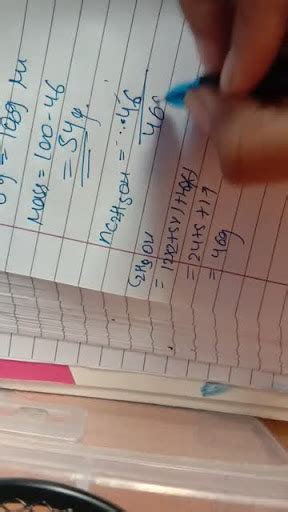 = 100g
Mass = 100-46
= 54g
nC2H5OH = ... 46
46
C2H5OH
= 12x2+5x1+
= 24+5+17
= 46g